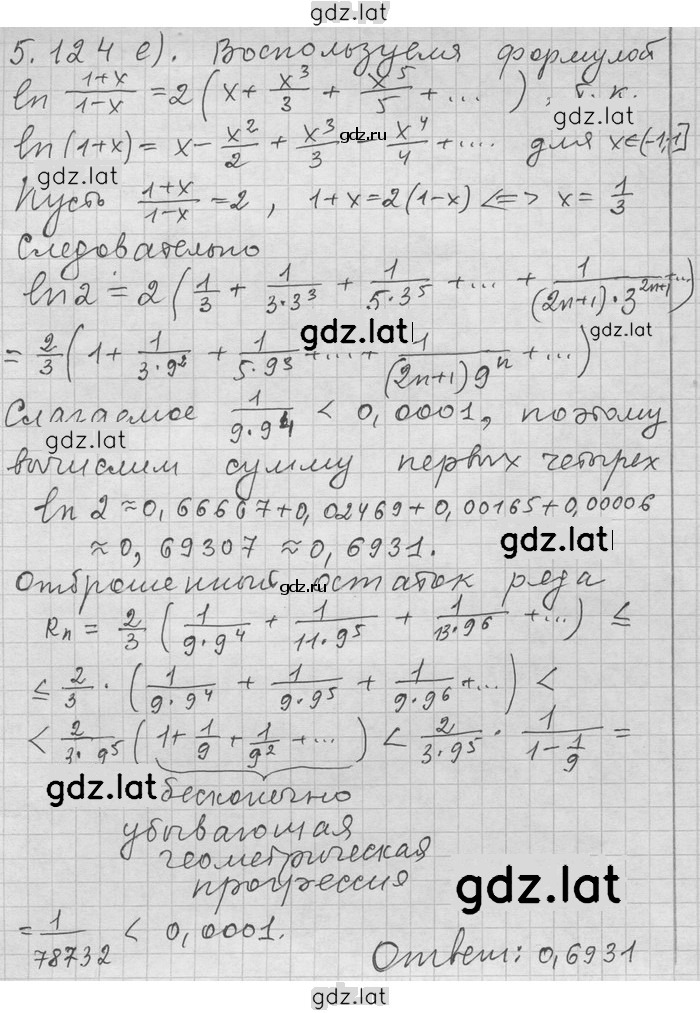 gdz.lat
5.124 е). Воспользуемся формулой
ln (1+x)/(1-x) = 2 (x + x³/3 + x⁵/5 + ...), т. к.
gdz.lat
ln(1+x) = x - x²/2 + x³/3 - x⁴/4 + .... для x∈(-1;1]
gdz.ru
gdz.lat
Пусть (1+x)/(1-x) = 2, 1+x=2(1-x) <=> x = 1/3
Следовательно
ln 2 = 2 (1/3 + 1/(3·3³) + 1/(5·3⁵) + ... + 1/((2n+1)·3²ⁿ⁺¹) + ...)
gdz.lat
gdz.lat
= 2/3 (1 + 1/(3·9²) + 1/(5·9³) + ... + 1/((2n+1)9ⁿ) + ...)
Слагаемое 1/(9·9⁴) < 0,0001, поэтому
gdz.lat
вычислим сумму первых четырех
ln 2 ≈ 0,66667+0,02469+0,00165+0,00006
≈ 0,69307 ≈ 0,6931.
gdz.lat
Отброшенный остаток ряда
gdz.ru
Rₙ = 2/3 (1/(9·9⁴) + 1/(11·9⁵) + 1/(13·9⁶) + ...) ≤
≤ 2/3 · (1/(9·9⁴) + 1/(9·9⁵) + 1/(9·9⁶) + ...) <
< 2/(3·9⁵) (1 + 1/9 + 1/9² + ...) < 2/(3·9⁵) · 1/(1 - 1/9) =
gdz.lat
бесконечно
убывающая
геометрическая
прогрессия
gdz.lat
= 1/78732 < 0,0001.
Ответ: 0,6931
gdz.lat